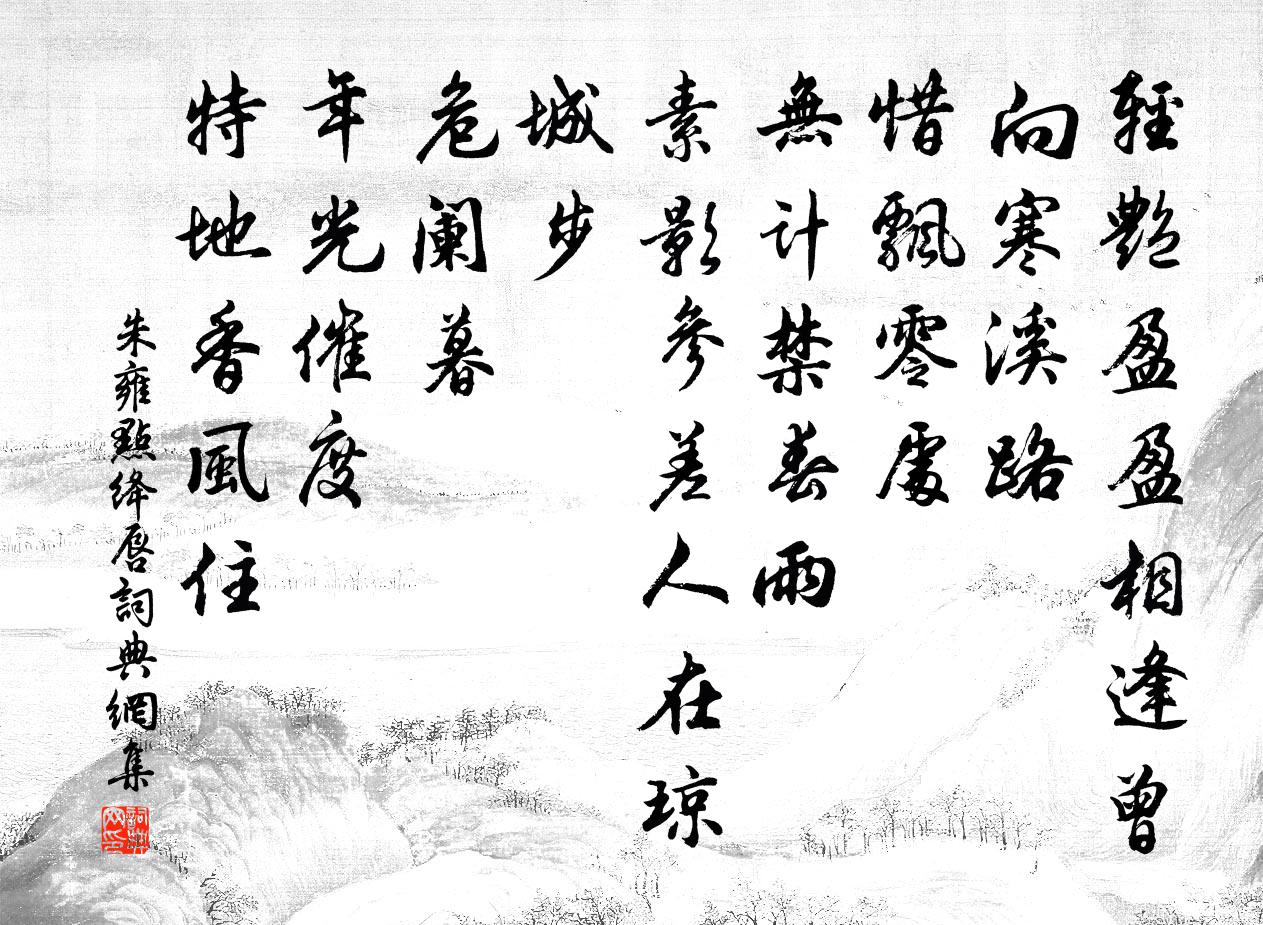 輕艷盈盈相逢曾
向寒溪路
惜飄零處
無計禁春雨
素影參差人在琼
城步
危阑暮
年光催度
特地香風住
朱雍點绛唇詞典網集
詞典網印